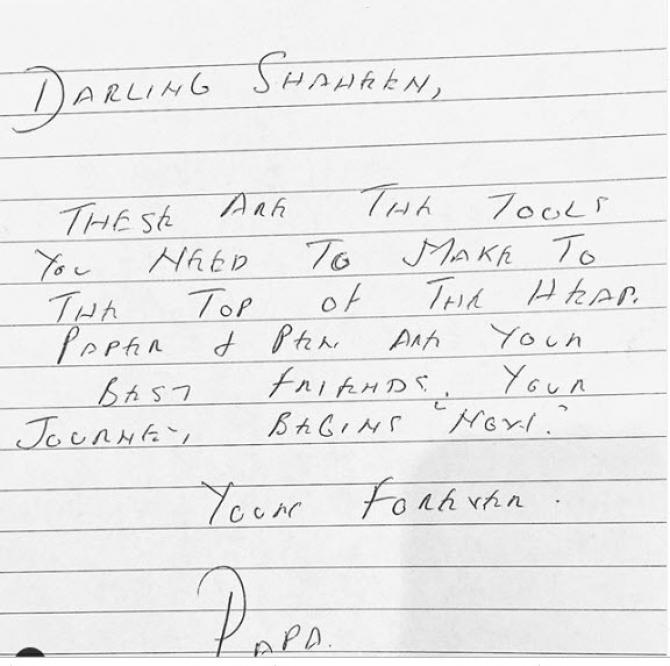 DARLING SHAHEEN,
THESE ARE THE TOOLS
YOU NEED TO MAKE TO
THE TOP OF THE HEAP.
PAPER & PEN ARE YOUR
BEST FRIENDS. YOUR
JOURNEY, BEGINS "NOW."
YOURS FOREVER.
PAPA.